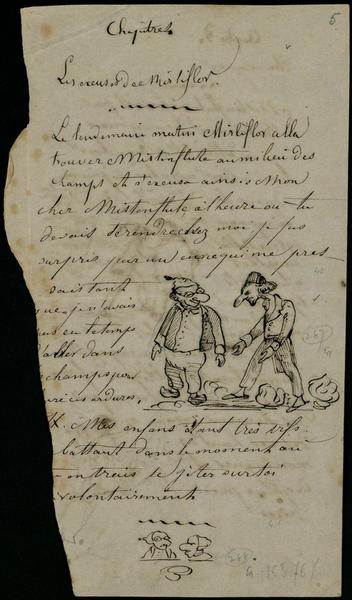 5
Chapitre
Les excuses de Mirliflor
Le lendemain matin Mirliflor alla
trouver Mistenflute au milieu des
champs et s'excusa ainsi: Mon
cher Mistenflute à l'heure où tu
devais te rendre chez moi je fus
surpris par un envie qui me pres
sait tant
que je n'avais
pas eu le temps
d'aller dans
champs pour
ordures.
Mes enfans étant très vifs
battant dans le moment où
entrais se jeter sur toi
involontairement